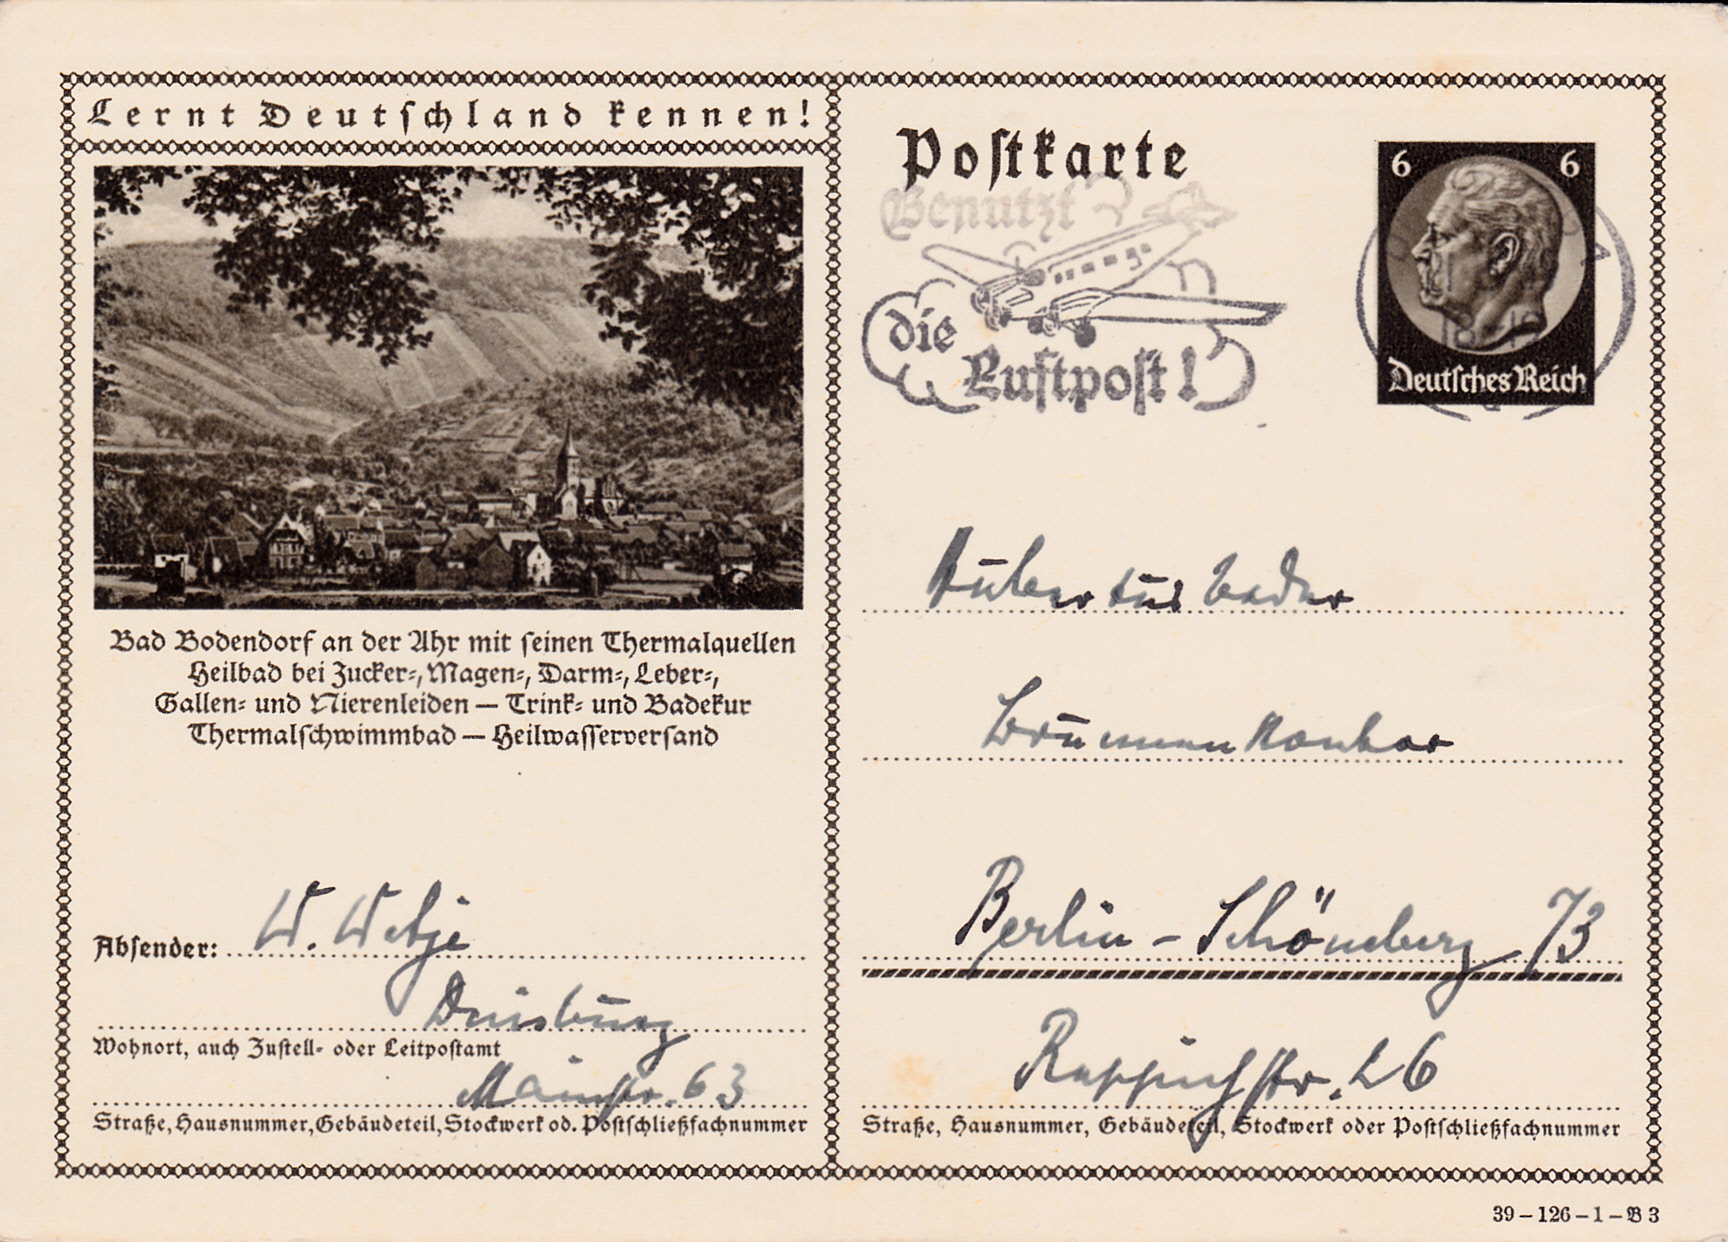 Lernt Deutschland kennen!
Bad Bodendorf an der Ahr mit seinen Thermalquellen
Heilbad bei Zucker-, Magen-, Darm-, Leber-,
Gallen- und Nierenleiden — Trink- und Badekur
Thermalschwimmbad — Heilwasserversand
Absender: W. Wetje
Duisburg
Wohnort, auch Zustell- oder Leitpostamt
Mainstr. 63
Straße, Hausnummer, Gebäudeteil, Stockwerk od. Postschließfachnummer
Postkarte
Benutzt
die
Luftpost!
6 6
Deutsches Reich
18-19
Hubertus Bader
Brunnenkontor
Berlin - Schöneberg
Straße, Hausnummer, Gebäudeteil, Stockwerk oder Postschließfachnummer
39 – 126 – 1 – B 3